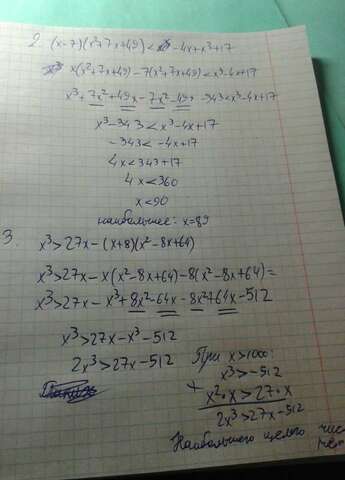 2. (x-7)(x²+7x+49)< -4x+x³+17
x(x²+7x+49)-7(x²+7x+49)<x³-4x+17
x³+7x²+49x-7x²-49x-343<x³-4x+17
x³-343<x³-4x+17
-343<-4x+17
4x<343+17
4x<360
x<90
наибольшее: x=89
3. x³>27x-(x+8)(x²-8x+64)
x³>27x-x(x²-8x+64)-8(x²-8x+64)=
x³>27x-x³+8x²-64x-8x²+64x-512
x³>27x-x³-512
2x³>27x-512
При x>1000:
x³>-512
+ x²·x>27·x
2x³>27x-512
Наибольшего целого
нет